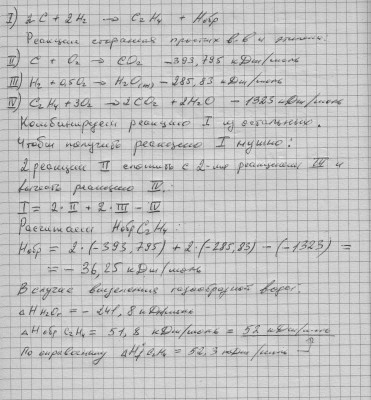 I) 2C + 2H₂ → C₂H₄ + Hобр
Реакции сгорания простых в-в и этилена:
II) C + O₂ → CO₂ -393,795 кДж/моль
III) H₂ + 0,5O₂ → H₂O(ж) -285,83 кДж/моль
IV) C₂H₄ + 3O₂ → 2CO₂ + 2H₂O -1323 кДж/моль
Комбинируем реакцию I из остальных.
Чтобы получить реакцию I нужно:
2 реакции II сложить с 2-мя реакциями III и
вычесть реакцию IV:
I = 2·II + 2·III - IV
Рассчитаем Hобр C₂H₄:
Hобр = 2·(-393,795) + 2·(-285,83) - (-1323) =
= -36,25 кДж/моль
В случае выделения газообразной воды:
ΔH H₂Oг = -241,8 кДж/моль
ΔHобр C₂H₄ = 51,8 кДж/моль = 52 кДж/моль
По справочнику ΔH C₂H₄ = 52,3 кДж/моль